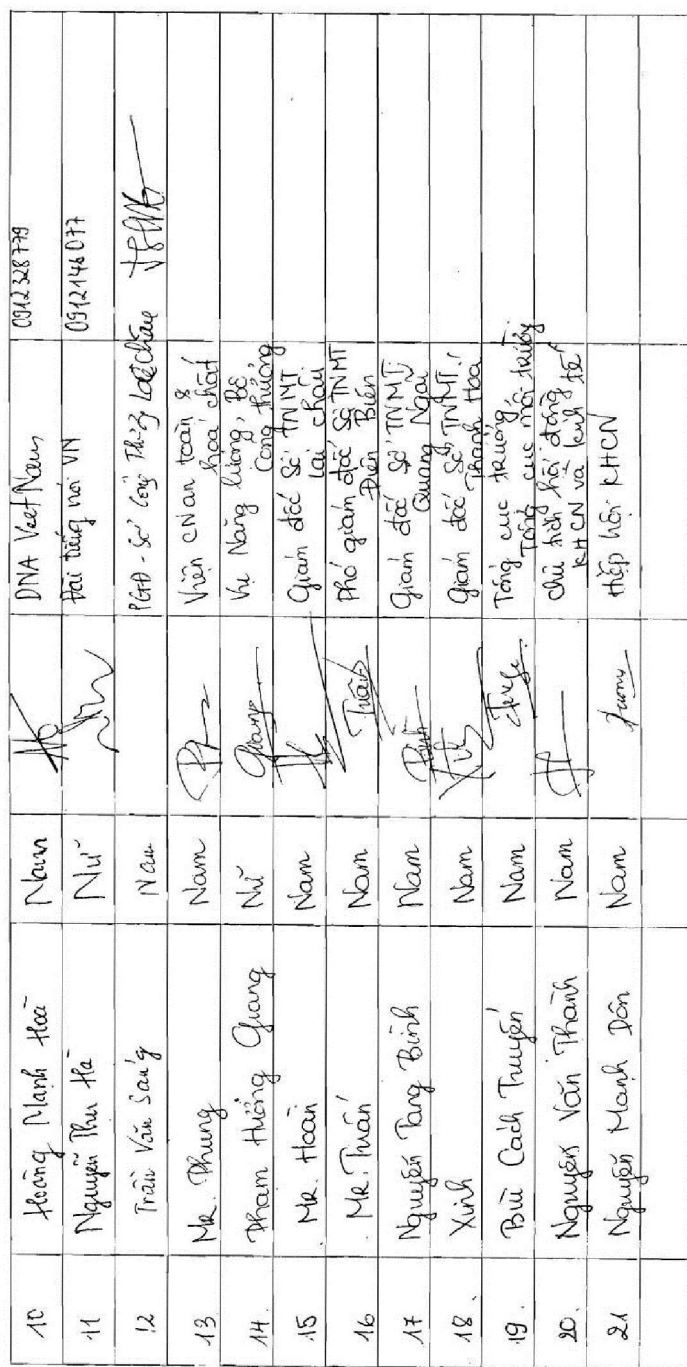 10 Hoàng Mạnh Hoà Nam DNA Viet Nam 0912328779
11 Nguyễn Thu Hà Nữ Đài tiếng nói VN 0912146077
12 Trần Văn Sáng Nam PGĐ - Sở Công Thương Lai Châu
13 Mr. Phung Nam Viện CN an toàn &
hoá chất
14. Pham Hương Giang Nữ Giang Vụ Năng lượng, Bộ
Công thương
15 Mr. Hoàn Nam Giám đốc Sở TNMT
Lai Châu
16 Mr. Tuấn Nam Tuấn Phó giám đốc Sở TNMT
Điện Biên
17 Nguyễn Tang Bình Nam Giám đốc Sở TNMT
Quang Ngai
18. Xinh Nam Giám đốc Sở TNMT
Thanh Hoá
19. Bùi Cách Tuyến Nam Tổng cục trưởng
Tổng cục môi trường
20. Nguyễn Văn Thành Nam Chủ tịch hội đồng
KHCN và kinh tế
21 Nguyễn Mạnh Dôn Nam Hiệp hội KHCN